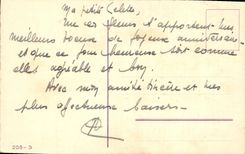 Ma petite Celeste,
Que ces fleurs t'apportent mes
meilleurs voeux de joyeux anniversaire
et que ce jour heureux soit comme
elles agréable et bon.
Avec mon amitié sincère et mes
plus affectueux baisers.
205-3